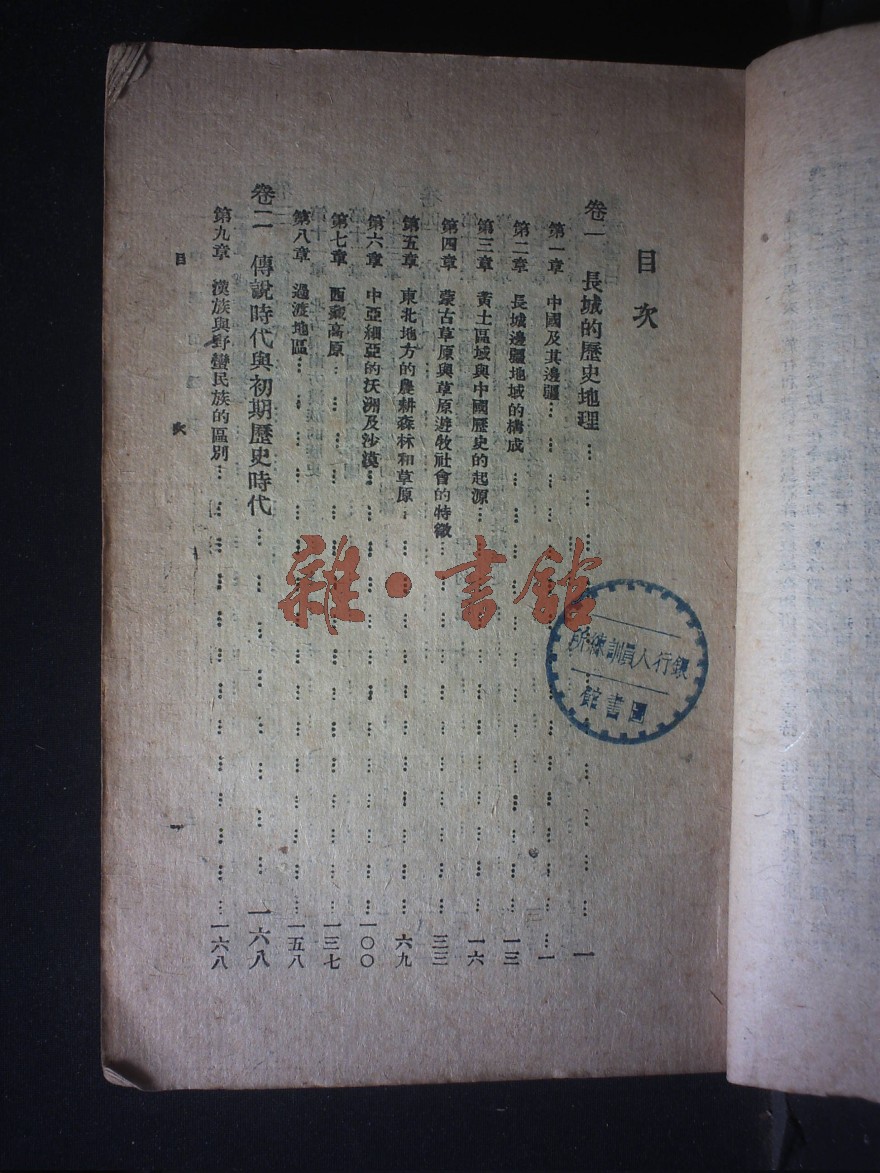 目次
卷一 長城的歷史地理……一
第一章 中國及其邊疆……一
第二章 長城邊疆地域的構成……一三
第三章 黃土區域與中國歷史的起源……一六
第四章 蒙古草原與草原遊牧社會的特徵……三三
第五章 東北地方的農耕森林和草原……六九
第六章 中亞細亞的沃洲及沙漠……一〇〇
第七章 西藏高原……一三七
第八章 過渡地區……一五八
卷二 傳說時代與初期歷史時代……一六八
第九章 漢族與野蠻民族的區別……一六八
目次
一
雜·書館
銀行人員訓練所
圖書館